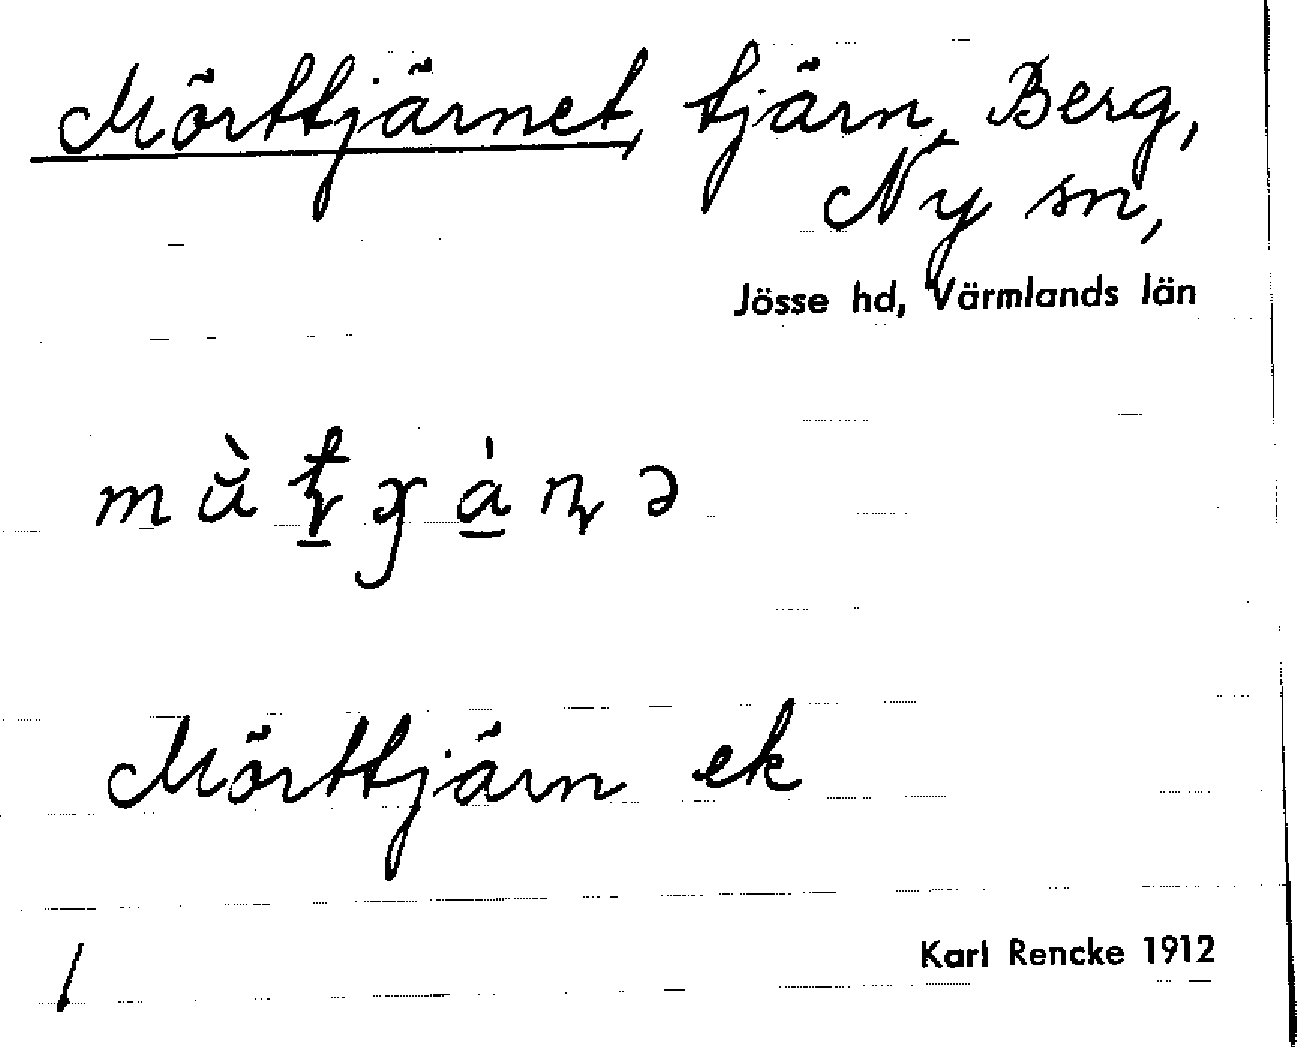 Mörttjärnet, tjärn, Berg,
Ny sn,
Jösse hd, Värmlands län
Mörttjärn ek
/
Karl Rencke 1912